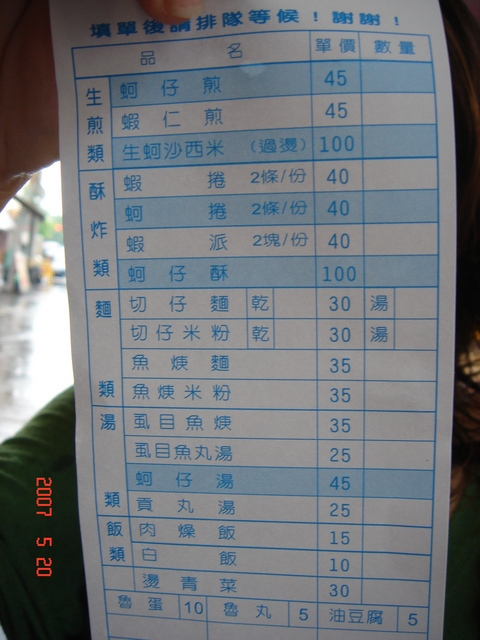 填單後請排隊等候！謝謝！
品 名 單價 數量
生煎類 蚵仔煎 45
蝦仁煎 45
生蚵沙西米 (過燙) 100
酥炸類 蝦捲 2條/份 40
蚵捲 2條/份 40
蝦派 2塊/份 40
蚵仔酥 100
麵類 切仔麵 乾 30 湯
切仔米粉 乾 30 湯
魚焿麵 35
魚焿米粉 35
湯類 虱目魚焿 35
虱目魚丸湯 25
蚵仔湯 45
貢丸湯 25
飯類 肉燥飯 15
白飯 10
燙青菜 30
魯蛋 10 魯丸 5 油豆腐 5
2007 5 20